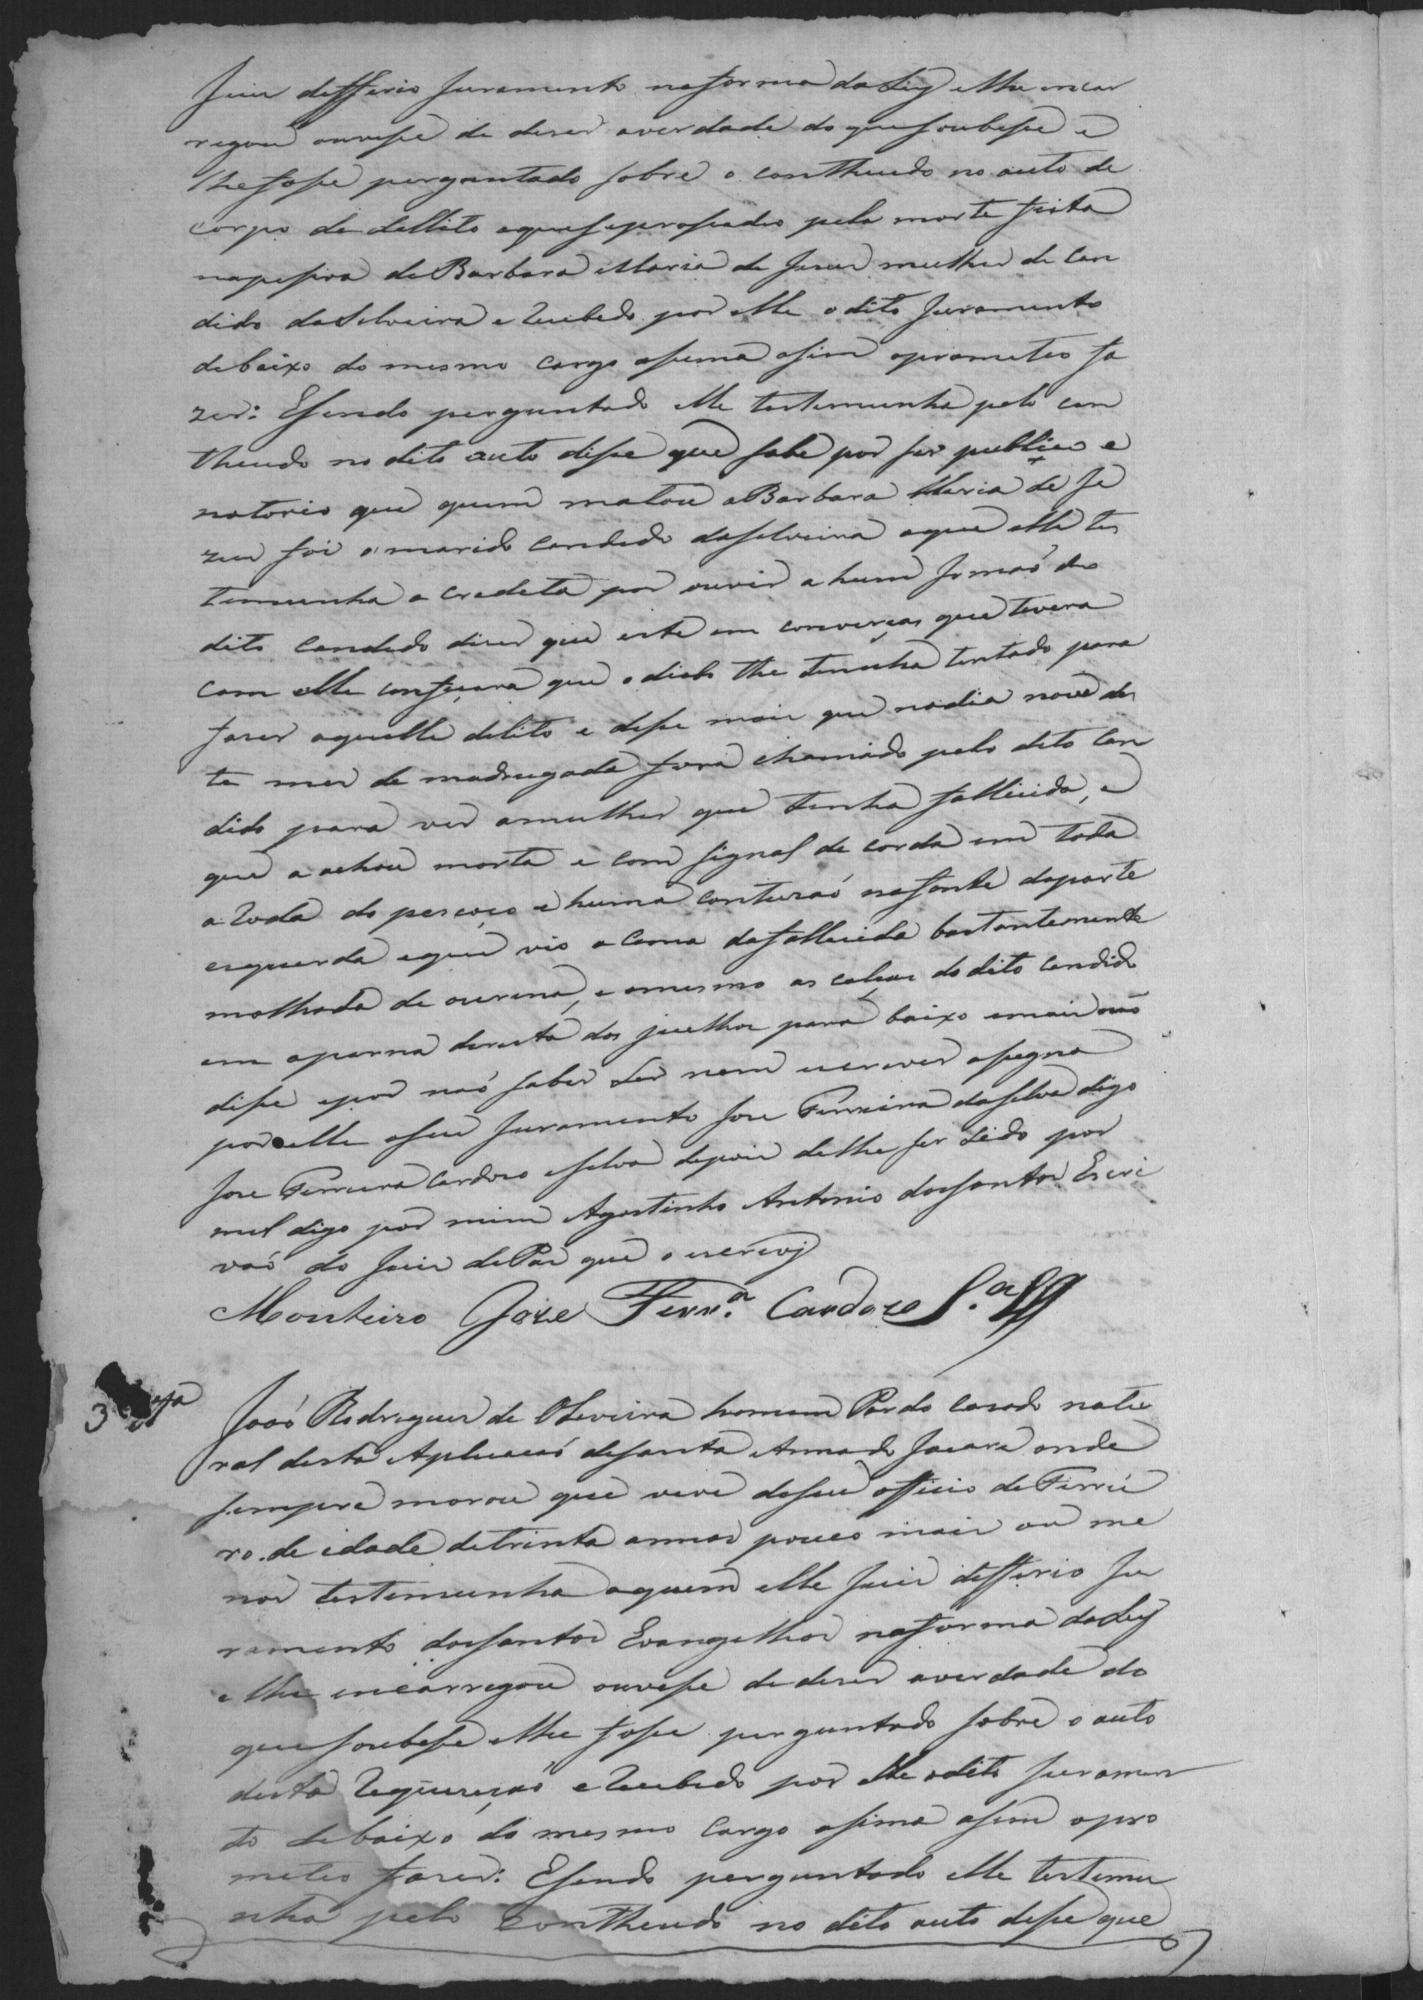 Juiz differio juramento na forma da Ley e lhe incar
regou ouvesse de dizer a verdade do que soubesse e
lhe fosse perguntado sobre o contheudo no auto de
corpo de dellito a que se proseadeo pela morte feita
na pessoa de Barbara Maria de Jesus mulher de Can
dido da Silveira e recebido por elle o dito juramento
debaixo do mesmo cargo assima assim o prometeo fa
zer: E sendo perguntado elle testemunha pelo con
theudo no dito auto disse que sabe por ser publico e
notorio que quem matou a Barbara Maria de Je
zus foi o marido Candido da Silveira o que elle tes
temunha a credita por ouvir a hum Jrmaõ do
dito Candido dizer que este em converças que tivera
com elle confeçara que o diabo lhe tinha tentado para
fazer aquelle delito e disse mais que no dia nove des
te mes de madrugada fora chamado pelo dito Can
dido para ver a mulher que tinha fallicido, e
que a achou morta e com signal de corda em toda
a roda do pescoço e huma contuzaõ na fonte da parte
esquerda e que vio a cama da fallicida bastantemente
molhada de ourina, e o mesmo as calças do dito Candido
em a perna direita dos juelhos para baixo e mais naõ
disse e por naõ saber ler nem escrever assigna
por elle o seu juramento Joze Ferreira da Silva digo
Joze Ferreira Cardozo e Silva depois de lhe ser lido por
mel digo por mim Agostinho Antonio dos Santos Escri
vaõ do Juiz de Paz que o escrevj
Monteiro Joze Ferr.ª Cardozo S.ª
3 ta
Joaõ Rodrigues de Oliveira homem Pardo cazado natu
ral desta Aplicacaõ de Santa Anna do Jacare onde
sempre morou que vive do seu officio de Ferrei
ro de idade de trinta annos pouco mais ou me
nos testemunha a quem elle Juiz differio Ju
ramento dos Santos Evangelhos na forma da Ley
e lhe incarregou ouvesse de dizer a verdade do
que soubesse e lhe fosse perguntado sobre o auto
desta e recebido por elle o dito juramen
to debaixo do mesmo cargo assima assim o pro
meteo fazer: E sendo perguntado elle testemu
nha pelo contheudo no dito auto disse que